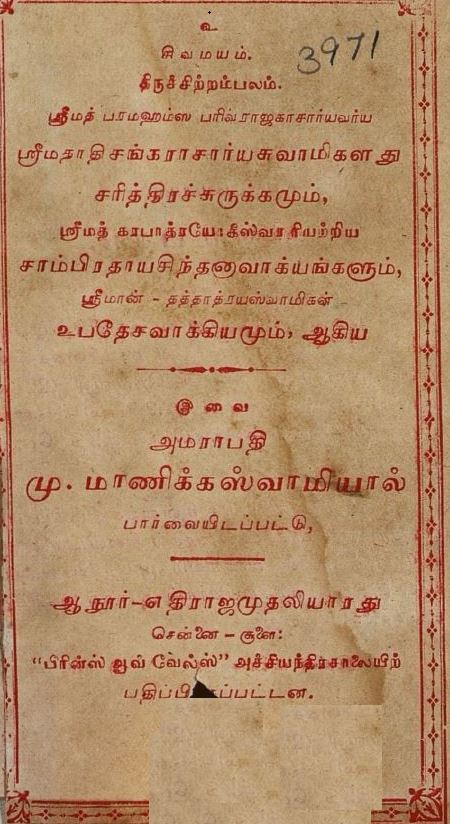 உ
சிவமயம்.
3971
திருச்சிற்றம்பலம்.
ஸ்ரீமத் பரமஹம்ஸ பரிவ்ராஜகாசார்யவர்ய
ஸ்ரீமதாதிசங்கராசார்யசுவாமிகளது
சரித்திரச்சுருக்கமும்,
ஸ்ரீமத் கரபாத்ரயோகீஸ்வரரியற்றிய
சாம்பிரதாயசிந்தனுவாக்யங்களும்,
ஸ்ரீமான் - தத்தாத்ரயஸ்வாமிகள்
உபதேசவாக்கியமும், ஆகிய
இவை
அமராபதி
மு. மாணிக்கஸ்வாமியால்
பார்வையிடப்பட்டு,
ஆநூர்-எதிராஜமுதலியாரது
சென்னை - சூளை:
"பிரின்ஸ் ஆவ் வேல்ஸ்" அச்சியந்திரசாலையிற்